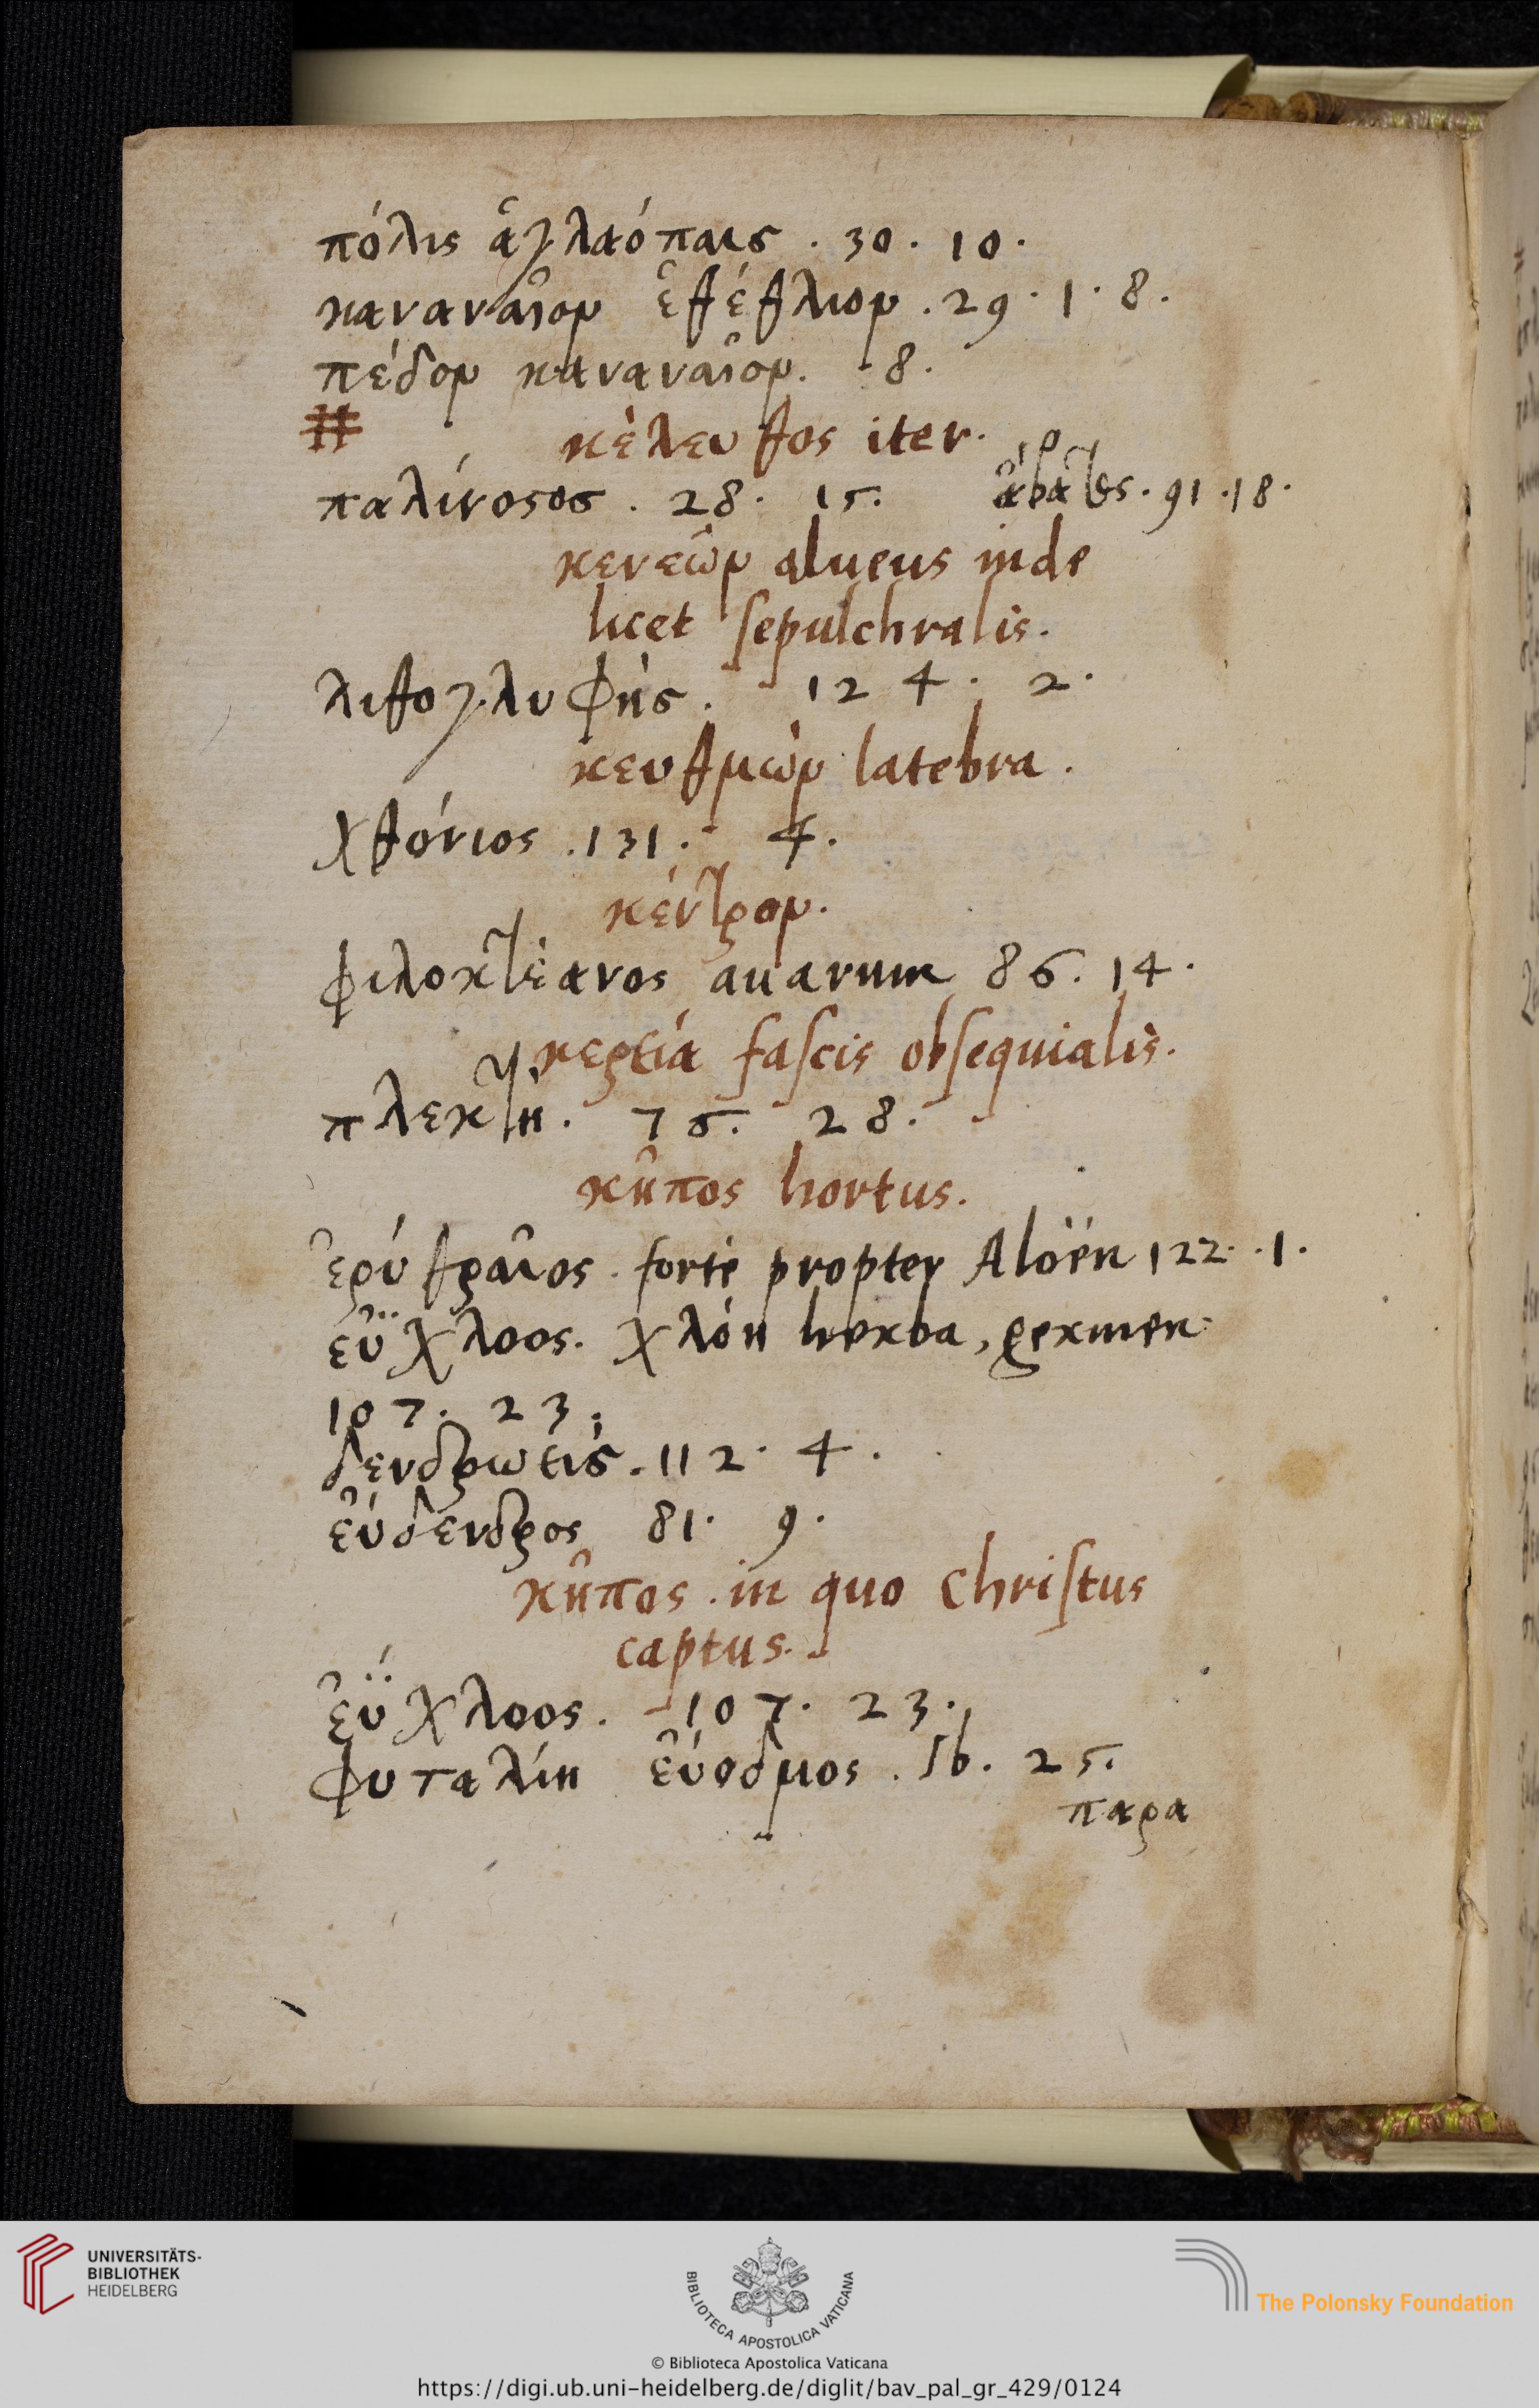 πόλις ἀγλαόπαις . 30 . 10 .
καναναῖον ἐθέθλιον . 29 . 1 . 8 .
πέδον καναναῖον . 8 .
κέλευθος iter .
παλίνοσος . 28 . 15 . . 91 . 18 .
κενεὼν alueus inde
licet sepulchralis .
λιθογλυφής . 12 4 . 2 .
κευθμὼν latebra .
χθόνιος . 131 . 4 .
κέντρον .
φιλοκτέανος auarum 86 . 14 .
κερεία fascis obsequialis .
πλεκτὴ . 76 . 28 .
κῆπος hortus .
ἐρυθραῖος . forte propter Aloën 122 . . 1 .
ἐΰχλοος . χλόη herba , germen .
107 . 23 .
δενδρωτις . 112 . 4 .
εὐδενδρος 81 . 9 .
κῆπος . in quo Christus
captus .
ἐΰχλοος . 107 . 23 .
φυταλίη εὔοδμος . Ib . 25 .
παρα
UNIVERSITÄTS-
BIBLIOTHEK
HEIDELBERG
BIBLIOTECA APOSTOLICA VATICANA
The Polonsky Foundation
© Biblioteca Apostolica Vaticana
https://digi.ub.uni-heidelberg.de/diglit/bav_pal_gr_429/0124